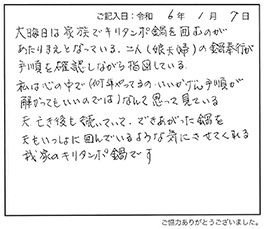 ご記入日：令和 6年 1月 7日
大晦日は家族でキリタンポ鍋を囲むのが
あたりまえとなっている。二人(娘夫婦)の鍋奉行が
手順を確認しながら指図している
私は心の中で(何年やってるの・いいかげん手順が
解かってもいいのでは)なんて思って見ている
夫亡き後も続いていて、できあがった鍋を
夫もいっしょに囲んでいるような気にさせてくれる
我家のキリタンポ鍋です
ご協力ありがとうございました。